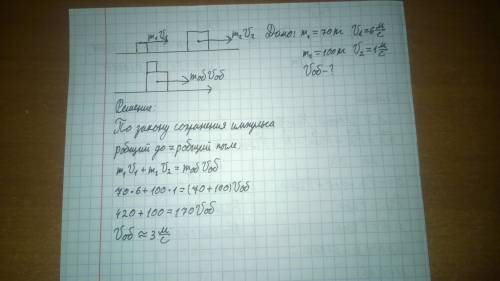 m₁V₁ m₂V₂ Дано: m₁=70кг V₁=6 м/с
m₂=100кг V₂=1 м/с
mобVоб Vоб-?
Решение:
По закону сохранения импульса
pобщий до = pобщий после.
m₁V₁+m₂V₂=mобVоб
70·6+100·1=(70+100)Vоб
420+100=170Vоб
Vоб≈3 м/с